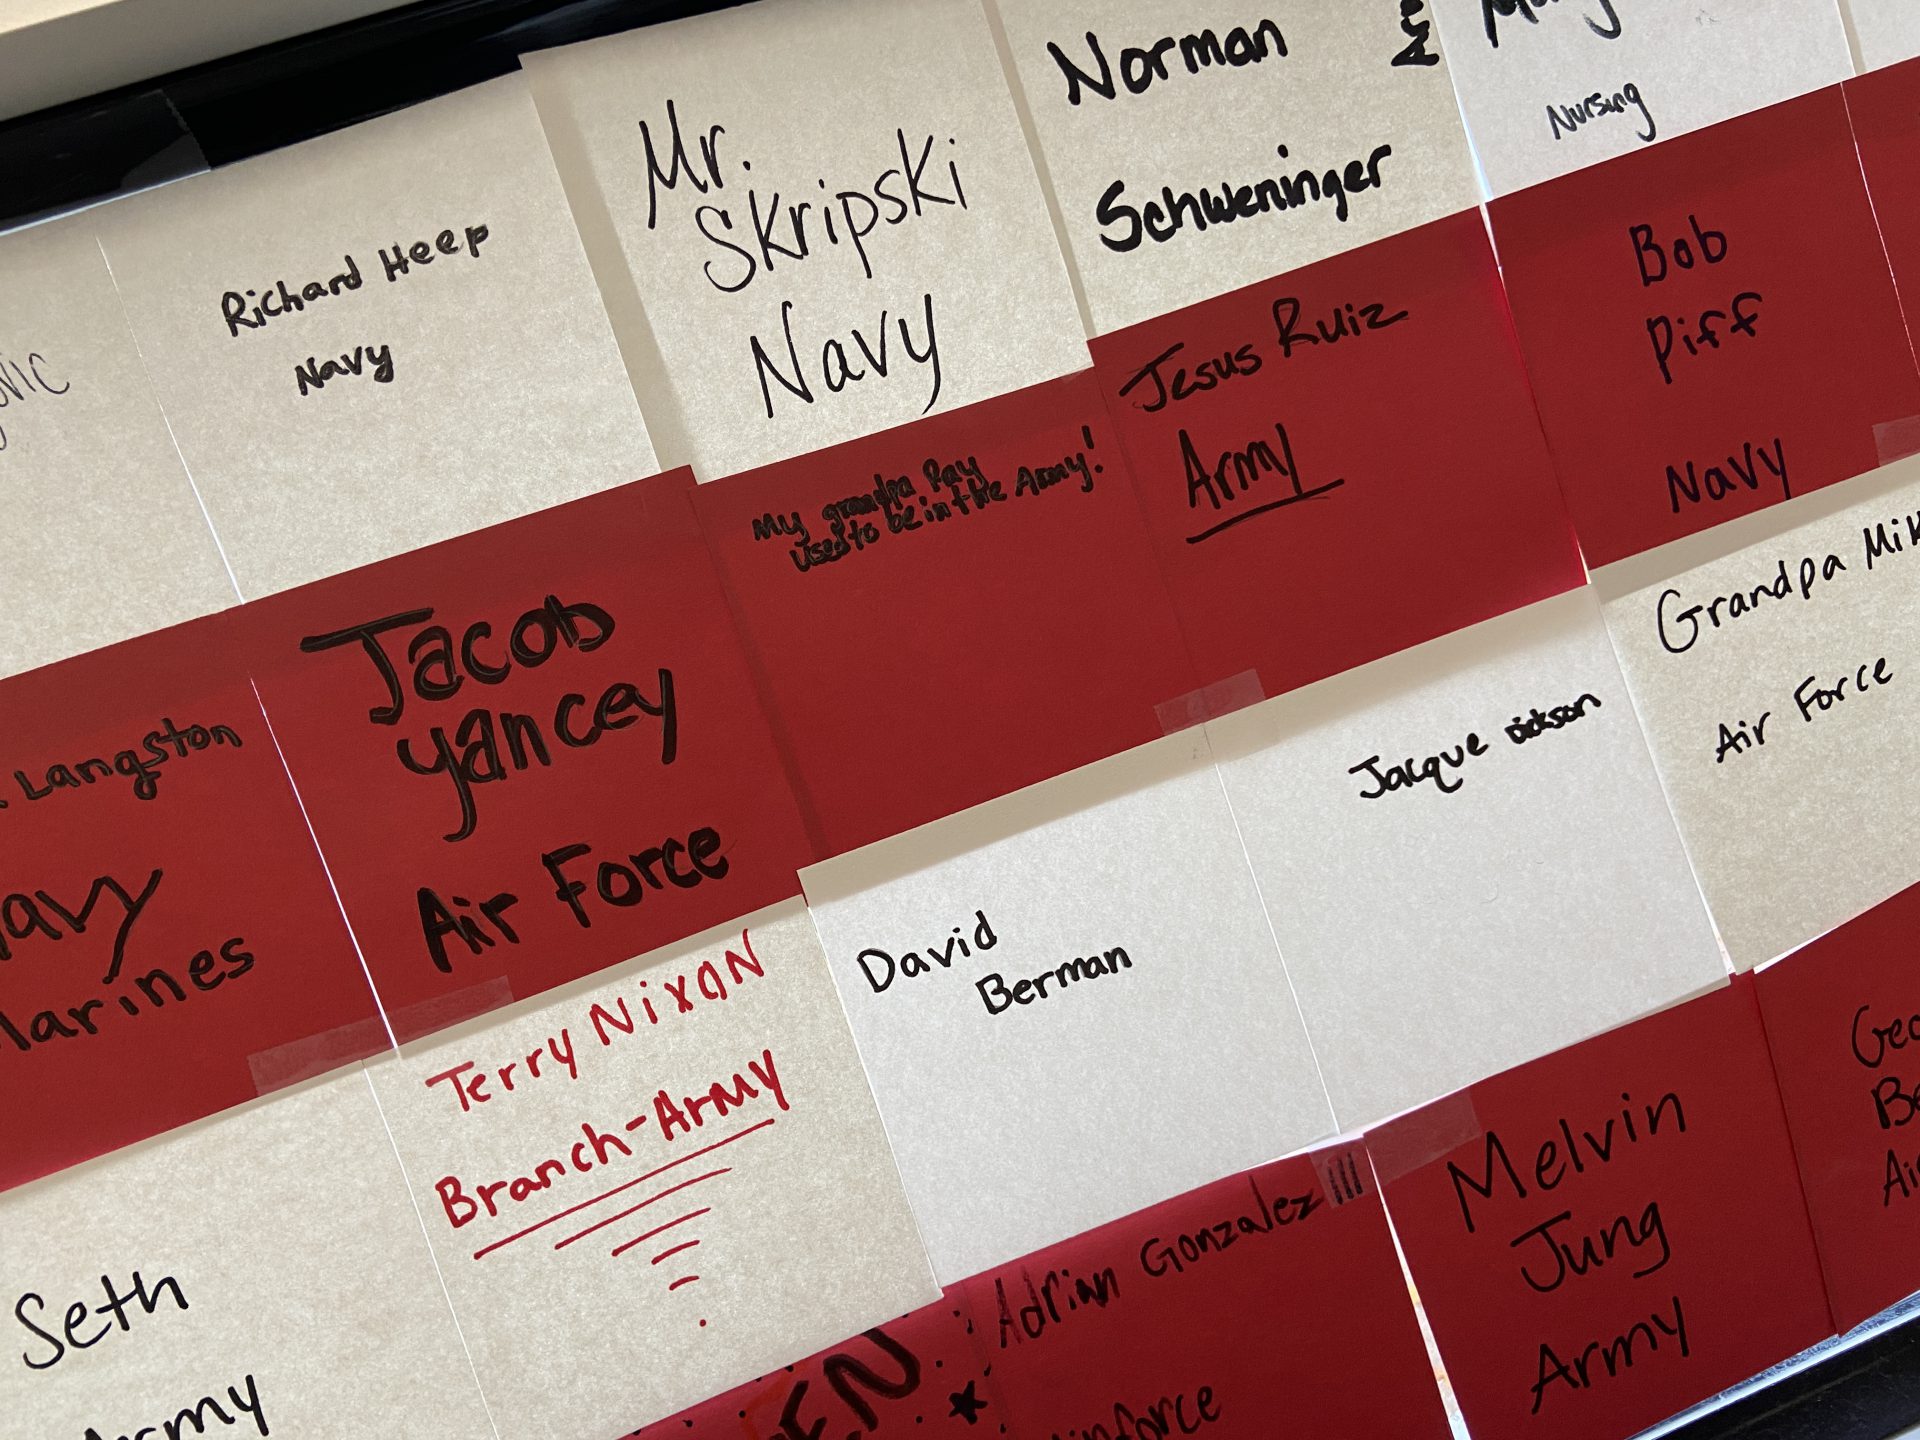 Richard Heep
Navy
Mr.
Skripski
Navy
Norman
Schweninger
Nursing
Langston
Marines
Jacob
Yancey
Air Force
My grandpa Ray
used to be in the Army!
Jesus Ruiz
Army
Bob
Piff
Navy
Seth
Army
Terry Nixon
Branch-Army
David
Berman
Jacque Dickson
Grandpa
Air Force
Adrian Gonzalez III
Melvin
Jung
Army